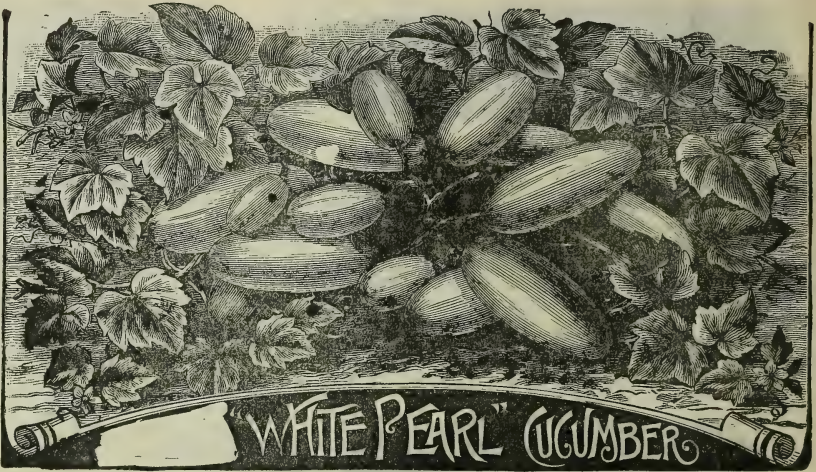 "WHITE PEARL" CUCUMBER